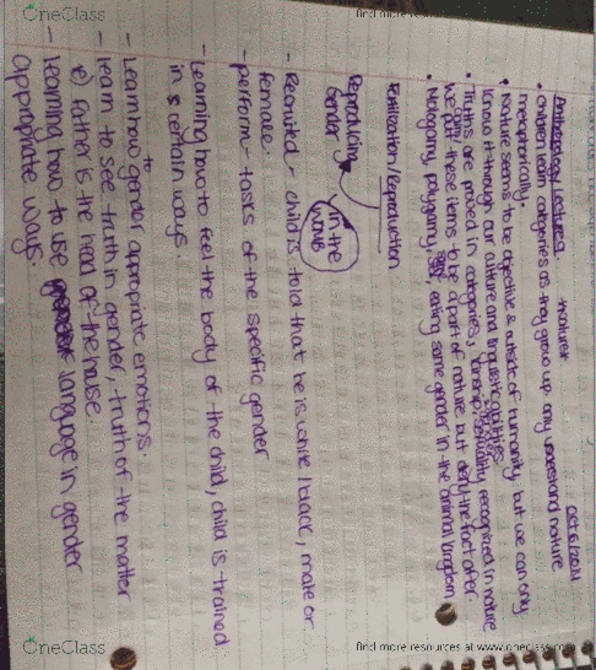 OneClass
find more resources at www.oneclass.com
Oct 6/2011
Anthropology Lecture
"Nature"
• Children learn categories as they grow up. only understand nature
metaphorically.
• Nature seems to be objective & outside of humanity but we can only
know it through our culture and linguistic abilities
• Truths are proved in categories, kinship, sexuality recognized in nature
we put these items to be a part of nature but deny the fact after.
• Monogamy, polygamy, eating same gender in the animal kingdom
Fertilization/Reproduction
Reproducing
Gender
in the
womb
- Recruited - child is told that he is white/black, male or
female.
- perform - tasks of the specific gender
- Learning how to feel the body of the child, child is trained
in certain ways.
- Learn how to gender appropriate emotions.
- learn to see truth in gender, truth of the matter
e) father is the head of the house.
- learning how to use language in gender
appropriate ways.
OneClass
find more resources at www.oneclass.com